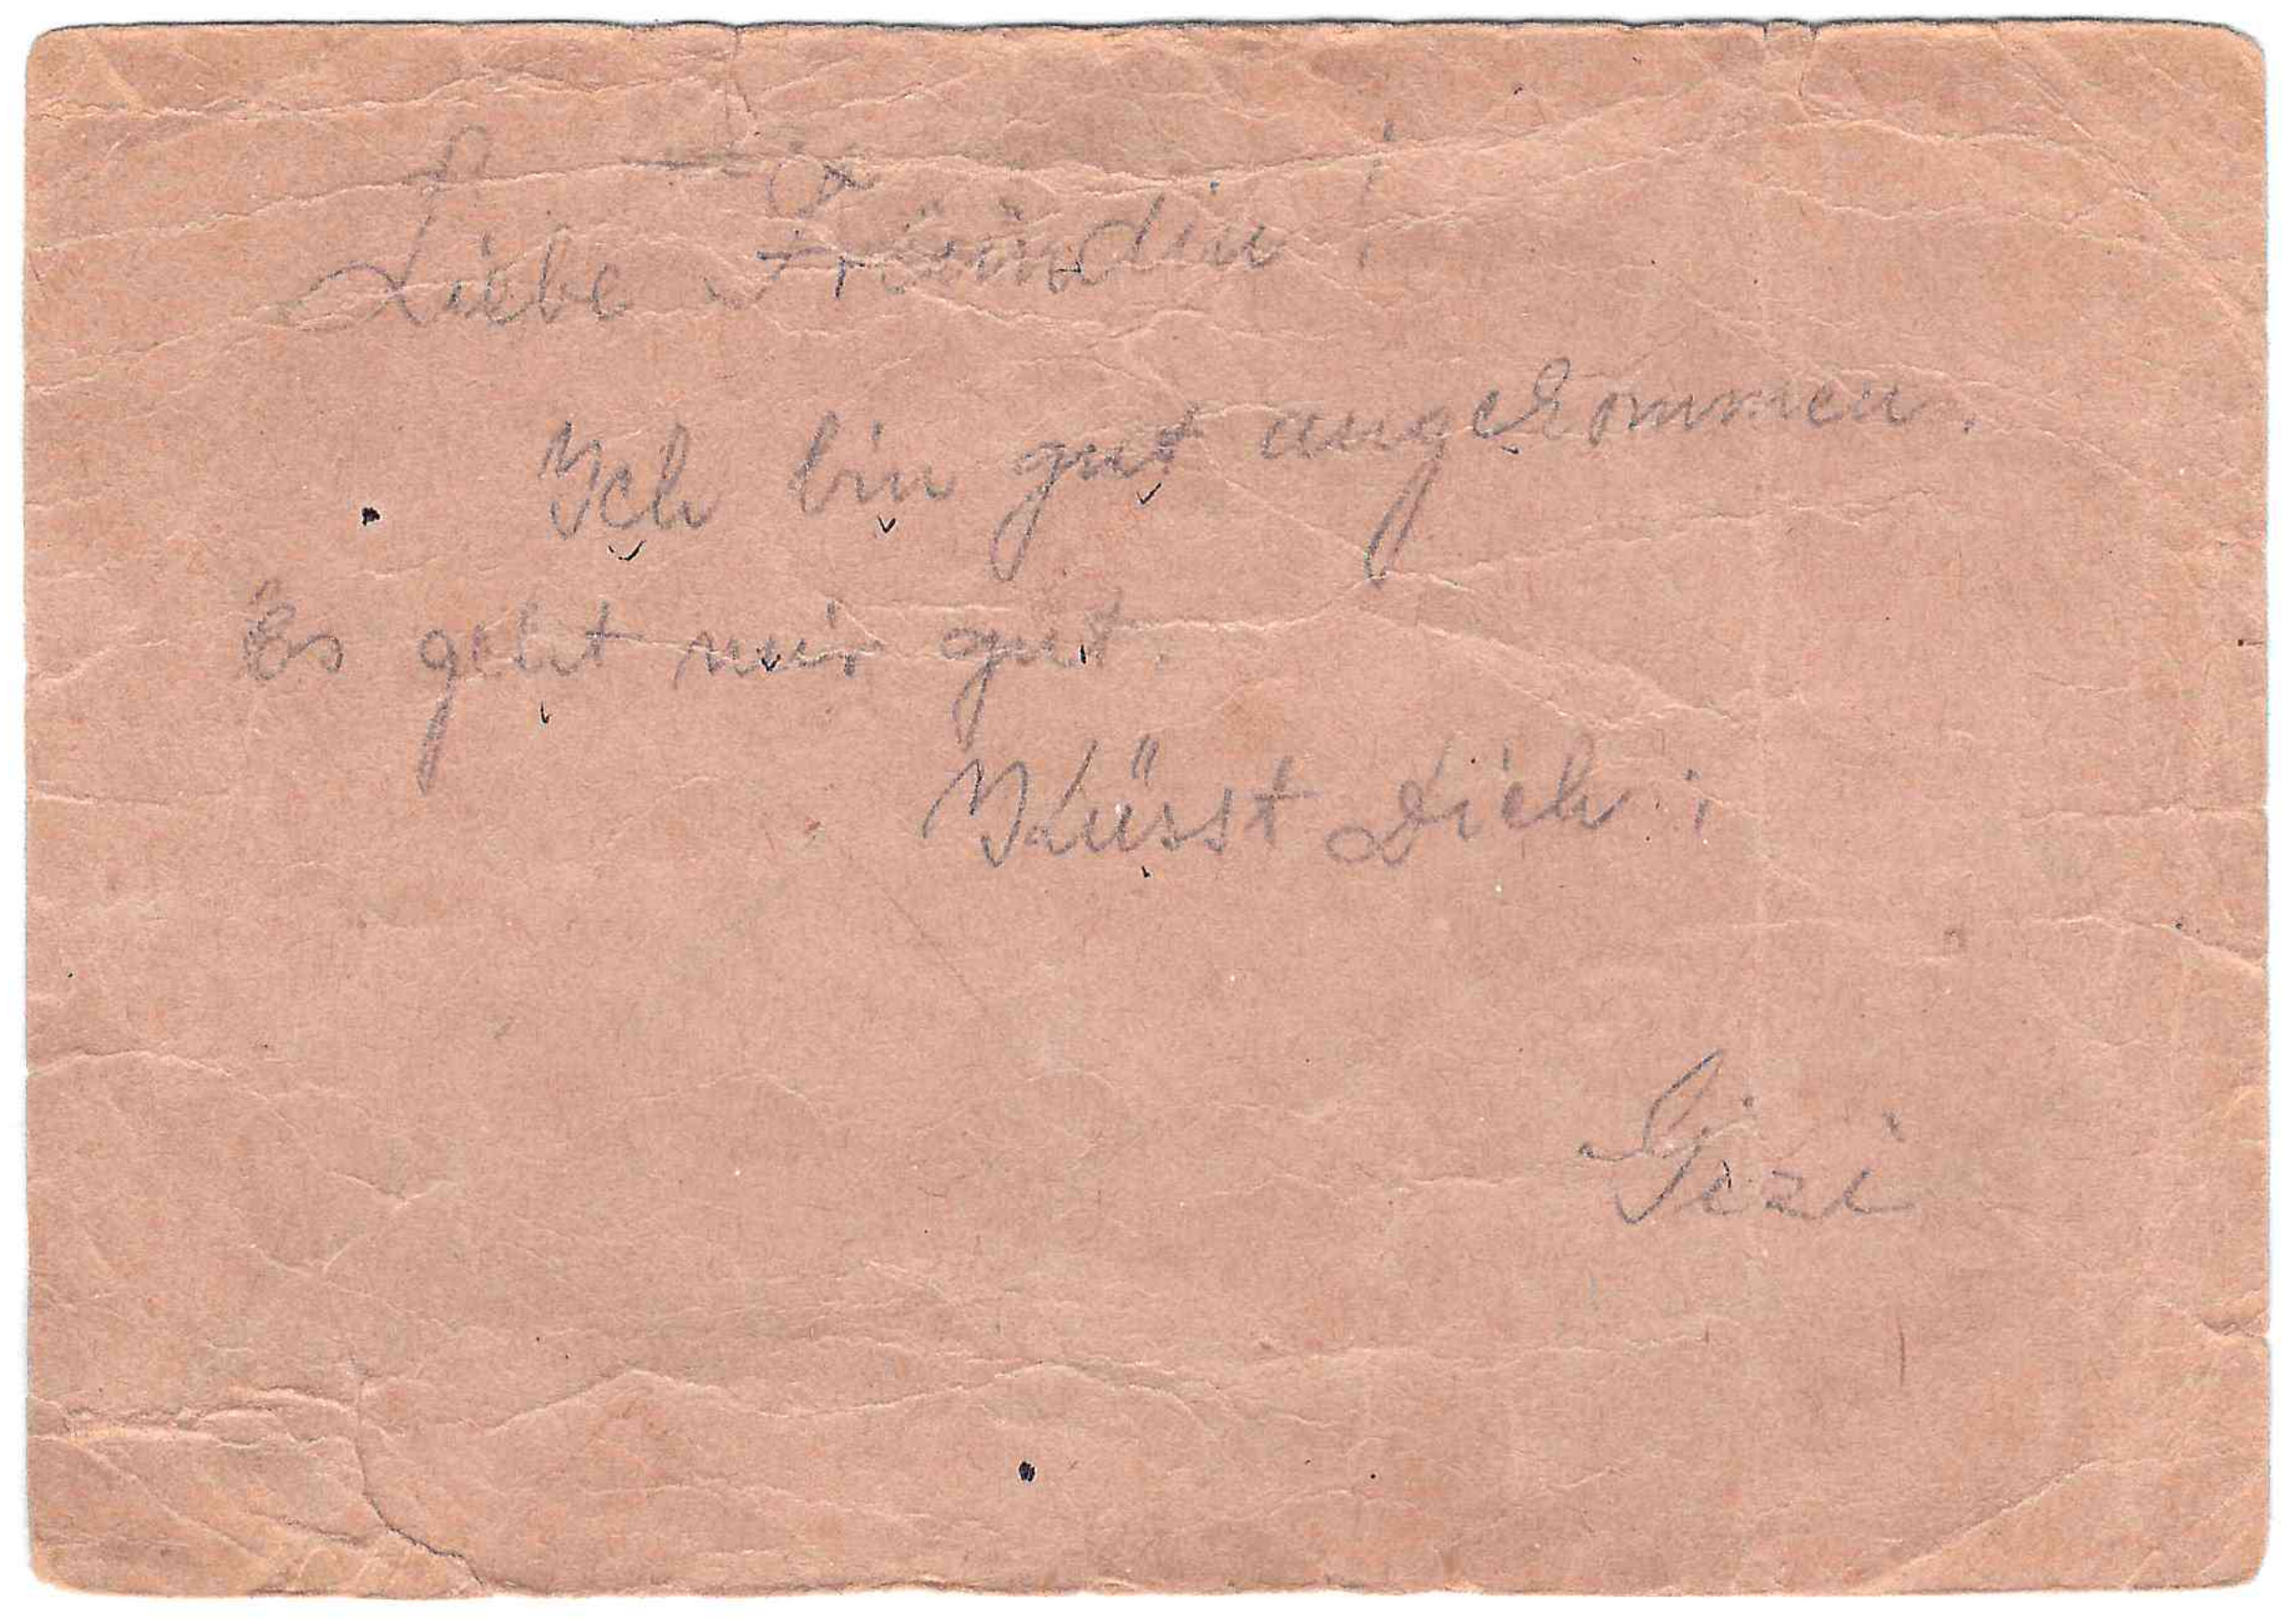 Liebe Fröündin!
Ich bin gut angekommen.
Es geht mir gut.
Küsst Dich:
Gizi